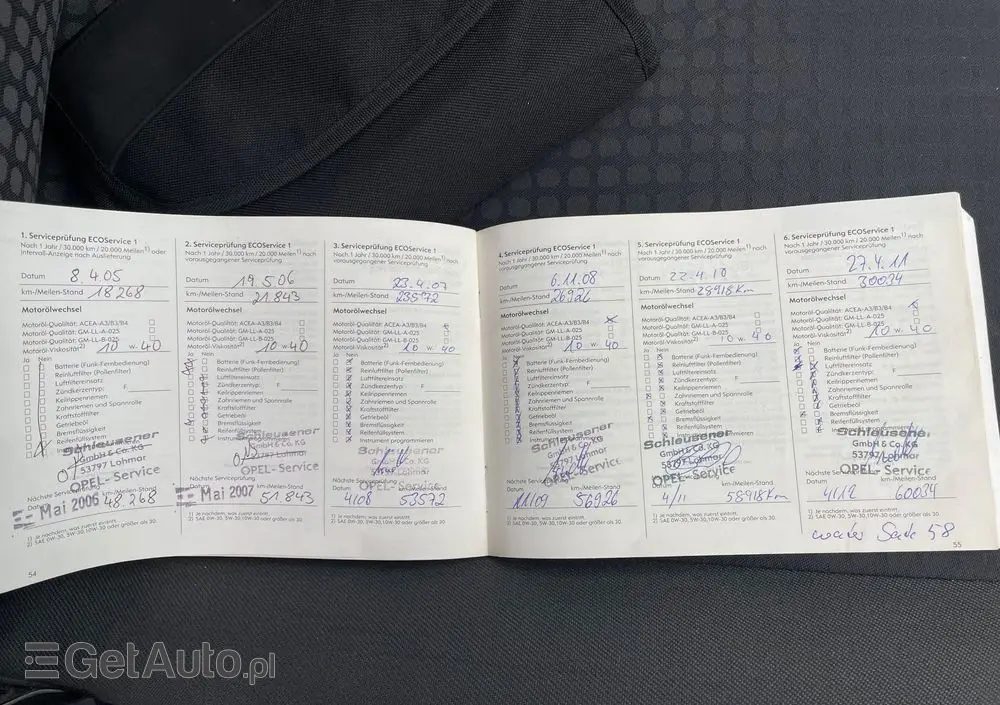 1. Serviceprüfung ECOService 1
Nach 1 Jahr / 30.000 km / 20.000 Meilen1) oder
Intervall-Anzeige nach Auslieferung
Datum 8.4.05
km-/Meilen-Stand 18268
Motorölwechsel
Motoröl-Qualität: ACEA-A3/B3/B4
Motoröl-Qualität: GM-LL-A-025
Motoröl-Qualität: GM-LL-B-025
Motoröl-Viskosität2) 10 w 40
Ja Nein
Batterie (Funk-Fernbedienung)
Reinluftfilter (Pollenfilter)
Luftfiltereinsatz
Zündkerzentyp: F
Keilrippenriemen
Zahnriemen und Spannrolle
Kraftstofffilter
Getriebeöl
Bremsflüssigkeit
Reifenfüllsystem
Schleusener
GmbH & Co. KG
53797 Lohmar
OPEL-Service
Nächste Serviceprüfung
Datum km-/Meilen-Stand
Mai 2006 48.268
1) Je nachdem, was zuerst eintritt.
2) SAE 0W-30, 5W-30, 10W-30 oder größer als 30.
54
2. Serviceprüfung ECOService 1
Nach 1 Jahr / 30.000 km / 20.000 Meilen1) nach
vorausgegangener Serviceprüfung
Datum 19.5.06
km-/Meilen-Stand 21.843
Motorölwechsel
Motoröl-Qualität: ACEA-A3/B3/B4
Motoröl-Qualität: GM-LL-A-025
Motoröl-Qualität: GM-LL-B-025
Motoröl-Viskosität2) 10 w 40
Ja Nein
Batterie (Funk-Fernbedienung)
Reinluftfilter (Pollenfilter)
Luftfiltereinsatz
Zündkerzentyp: F
Keilrippenriemen
Zahnriemen und Spannrolle
Kraftstofffilter
Getriebeöl
Bremsflüssigkeit
Reifenfüllsystem
Schleusener
GmbH & Co. KG
53797 Lohmar
OPEL-Service
Nächste Serviceprüfung
km-/Meilen-Stand
Mai 2007 51.843
1) Je nachdem, was zuerst eintritt.
2) SAE 0W-30, 5W-30, 10W-30 oder größer als 30.
3. Serviceprüfung ECOService 1
Nach 1 Jahr / 30.000 km / 20.000 Meilen1) nach
vorausgegangener Serviceprüfung
Datum 23.4.07
km-/Meilen-Stand 23572
Motorölwechsel
Motoröl-Qualität: ACEA-A3/B3/B4
Motoröl-Qualität: GM-LL-A-025
Motoröl-Qualität: GM-LL-B-025
Motoröl-Viskosität2) 10 w 40
Ja Nein
Batterie (Funk-Fernbedienung)
Reinluftfilter (Pollenfilter)
Luftfiltereinsatz
Zündkerzentyp: F
Keilrippenriemen
Zahnriemen und Spannrolle
Kraftstofffilter
Getriebeöl
Bremsflüssigkeit
Reifenfüllsystem
Instrument programmieren
Schleusener
GmbH & Co. KG
53797 Lohmar
OPEL-Service
Nächste Serviceprüfung
Datum km-/Meilen-Stand
4/08 53572
1) Je nachdem, was zuerst eintritt.
2) SAE 0W-30, 5W-30, 10W-30 oder größer als 30.
4. Serviceprüfung ECOService 1
Nach 1 Jahr / 30.000 km / 20.000 Meilen1) nach
vorausgegangener Serviceprüfung
Datum 6.11.08
km-/Meilen-Stand 26926
Motorölwechsel
Motoröl-Qualität: ACEA-A3/B3/B4
Motoröl-Qualität: GM-LL-A-025
Motoröl-Qualität: GM-LL-B-025
Motoröl-Viskosität2) 10 w. 40
Ja Nein
Batterie (Funk-Fernbedienung)
Reinluftfilter (Pollenfilter)
Luftfiltereinsatz
Zündkerzentyp: F
Keilrippenriemen
Zahnriemen und Spannrolle
Kraftstofffilter
Getriebeöl
Bremsflüssigkeit
Reifenfüllsystem
Schleusener
GmbH & Co. KG
OPEL-Service
Nächste Serviceprüfung
Datum km-/Meilen-Stand
11/09 56926
1) Je nachdem, was zuerst eintritt.
2) SAE 0W-30, 5W-30, 10W-30 oder größer als 30.
5. Serviceprüfung ECOService 1
Nach 1 Jahr / 30.000 km / 20.000 Meilen1) nach
vorausgegangener Serviceprüfung
Datum 22.4.10
km-/Meilen-Stand 28918 km
Motorölwechsel
Motoröl-Qualität: ACEA-A3/B3/B4
Motoröl-Qualität: GM-LL-A-025
Motoröl-Qualität: GM-LL-B-025
Motoröl-Viskosität2) 10 w 40
Ja Nein
Batterie (Funk-Fernbedienung)
Reinluftfilter (Pollenfilter)
Luftfiltereinsatz
Zündkerzentyp: F
Keilrippenriemen
Zahnriemen und Spannrolle
Kraftstofffilter
Getriebeöl
Bremsflüssigkeit
Reifenfüllsystem
Schleusener
GmbH & Co. KG
53797 Lohmar
OPEL-Service
Nächste Serviceprüfung
Datum km-/Meilen-Stand
4/11 58918 km
1) Je nachdem, was zuerst eintritt.
2) SAE 0W-30, 5W-30, 10W-30 oder größer als 30.
6. Serviceprüfung ECOService 1
Nach 1 Jahr / 30.000 km / 20.000 Meilen1) nach
vorausgegangener Serviceprüfung
Datum 27.4.11
km-/Meilen-Stand 30034
Motorölwechsel
Motoröl-Qualität: ACEA-A3/B3/B4
Motoröl-Qualität: GM-LL-A-025
Motoröl-Qualität: GM-LL-B-025
Motoröl-Viskosität2) 10 w. 40
Ja Nein
Batterie (Funk-Fernbedienung)
Reinluftfilter (Pollenfilter)
Luftfiltereinsatz
Zündkerzentyp: F
Keilrippenriemen
Zahnriemen und Spannrolle
Kraftstofffilter
Getriebeöl
Bremsflüssigkeit
Reifenfüllsystem
Schleusener
GmbH & Co. KG
53797 Lohmar
OPEL-Service
Nächste Serviceprüfung
Datum km-/Meilen-Stand
4/12 60034
1) Je nachdem, was zuerst eintritt.
2) SAE 0W-30, 5W-30, 10W-30 oder größer als 30.
Seite 58
55
GetAuto.pl